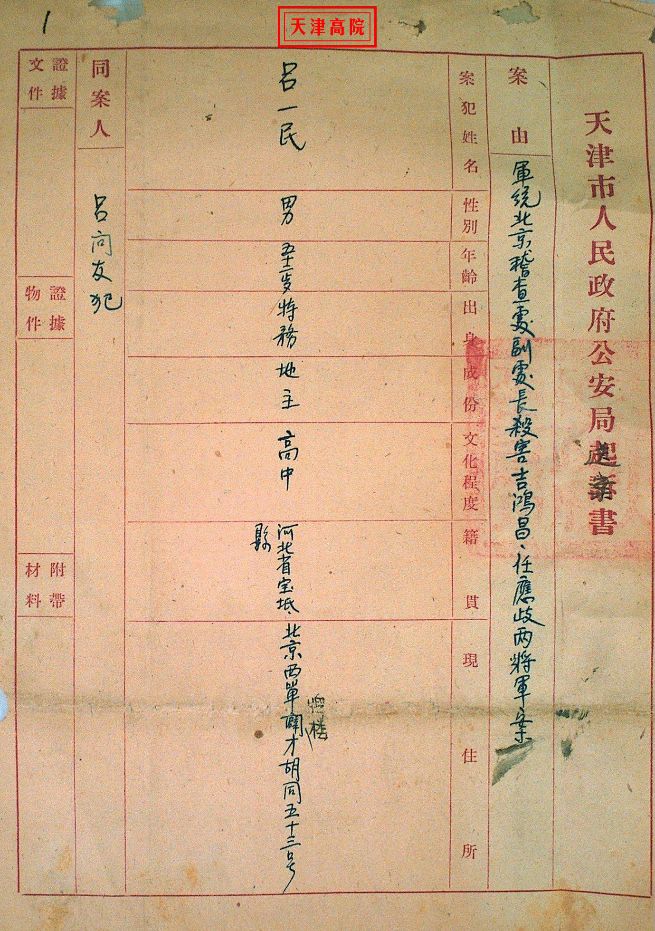 1
天津高院
天津市人民政府公安局起訴書
意
案由
軍統北京稽查處副處長殺害吉鴻昌、任應岐两將軍案
案犯姓名
性別
年齡
出身
成份
文化程度
籍貫
現住所
吕一民
男
五十二岁
特務
地主
高中
河北省宝坻
縣
北京西單
才胡同五十三号
牌楼
同案人
吕向友犯
證據文件
證據物件
附帶材料